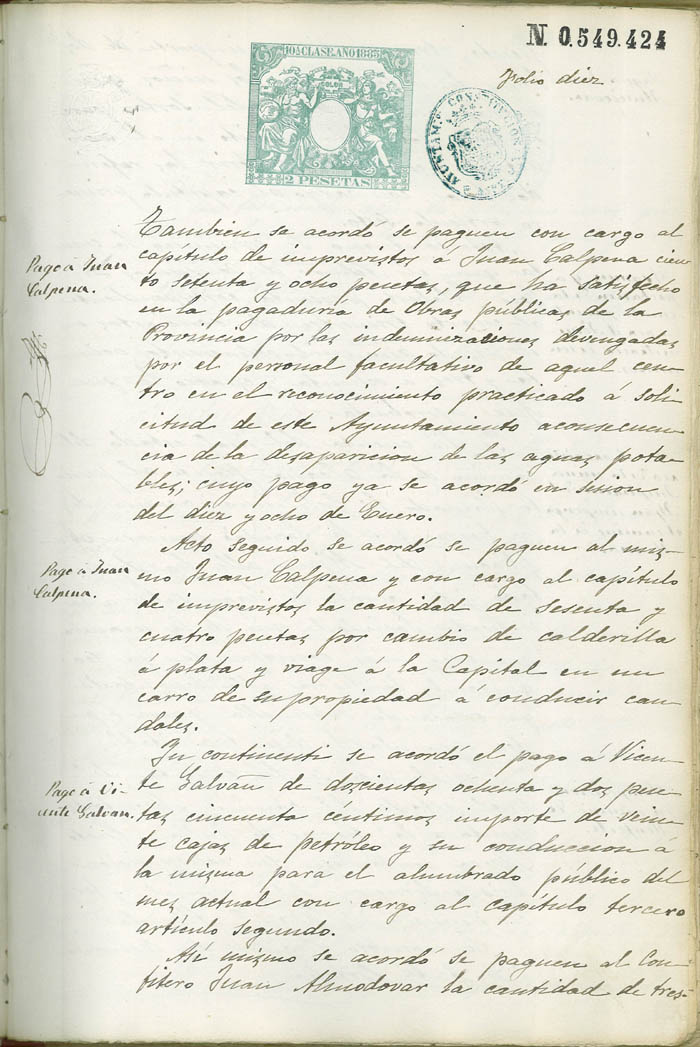 N. 0.549.424
10ª CLASE. AÑO 1885
2 PESETAS
Folio diez
Tambien se acordó se paguen con cargo al
Pago á Juan
Calpena.
capítulo de imprevistos á Juan Calpena cien
to setenta y ocho pesetas, que ha satisfecho
en la pagaduría de Obras públicas de la
Provincia por las indemnizaciones devengadas
por el personal facultativo de aquel cen-
tro en el reconocimiento practicado á soli-
citud de este Ayuntamiento aconsecuen
cia de la desaparicion de las aguas pota-
bles; cuyo pago ya se acordó en sesion
del diez y ocho de Enero.
Pago á Juan
Calpena.
Acto seguido se acordó se paguen al mis-
mo Juan Calpena y con cargo al capítulo
de imprevistos la cantidad de sesenta y
cuatro pesetas por cambio de calderilla
á plata y viage á la Capital en un
carro de su propiedad á conducir cau
dales.
Pago á Vi-
cente Galvan.
In continenti se acordó el pago á Vicen
te Galván de doscientas ochenta y dos pese
tas cincuenta céntimos importe de vein
te cajas de petróleo y su conduccion á
la misma para el alumbrado público del
mes actual con cargo al capítulo tercero
artículo segundo.
Así mismo se acordó se paguen al Con-
fitero Juan Almodovar la cantidad de tres-